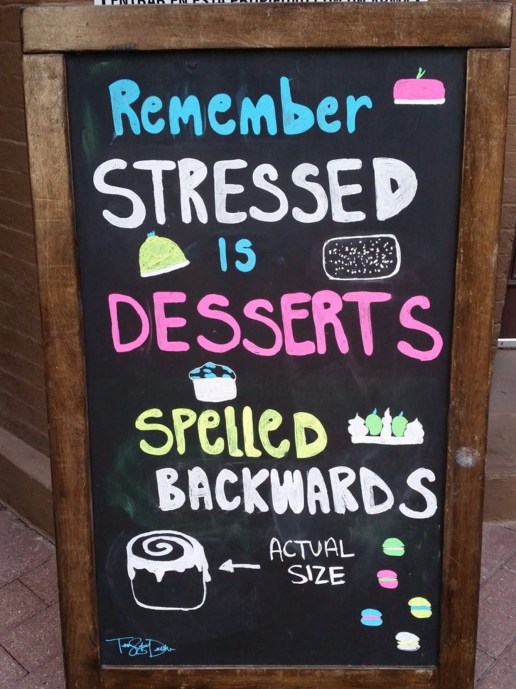 Remember
STRESSED
IS
DESSERTS
SPELLED
BACKWARDS
ACTUAL
SIZE